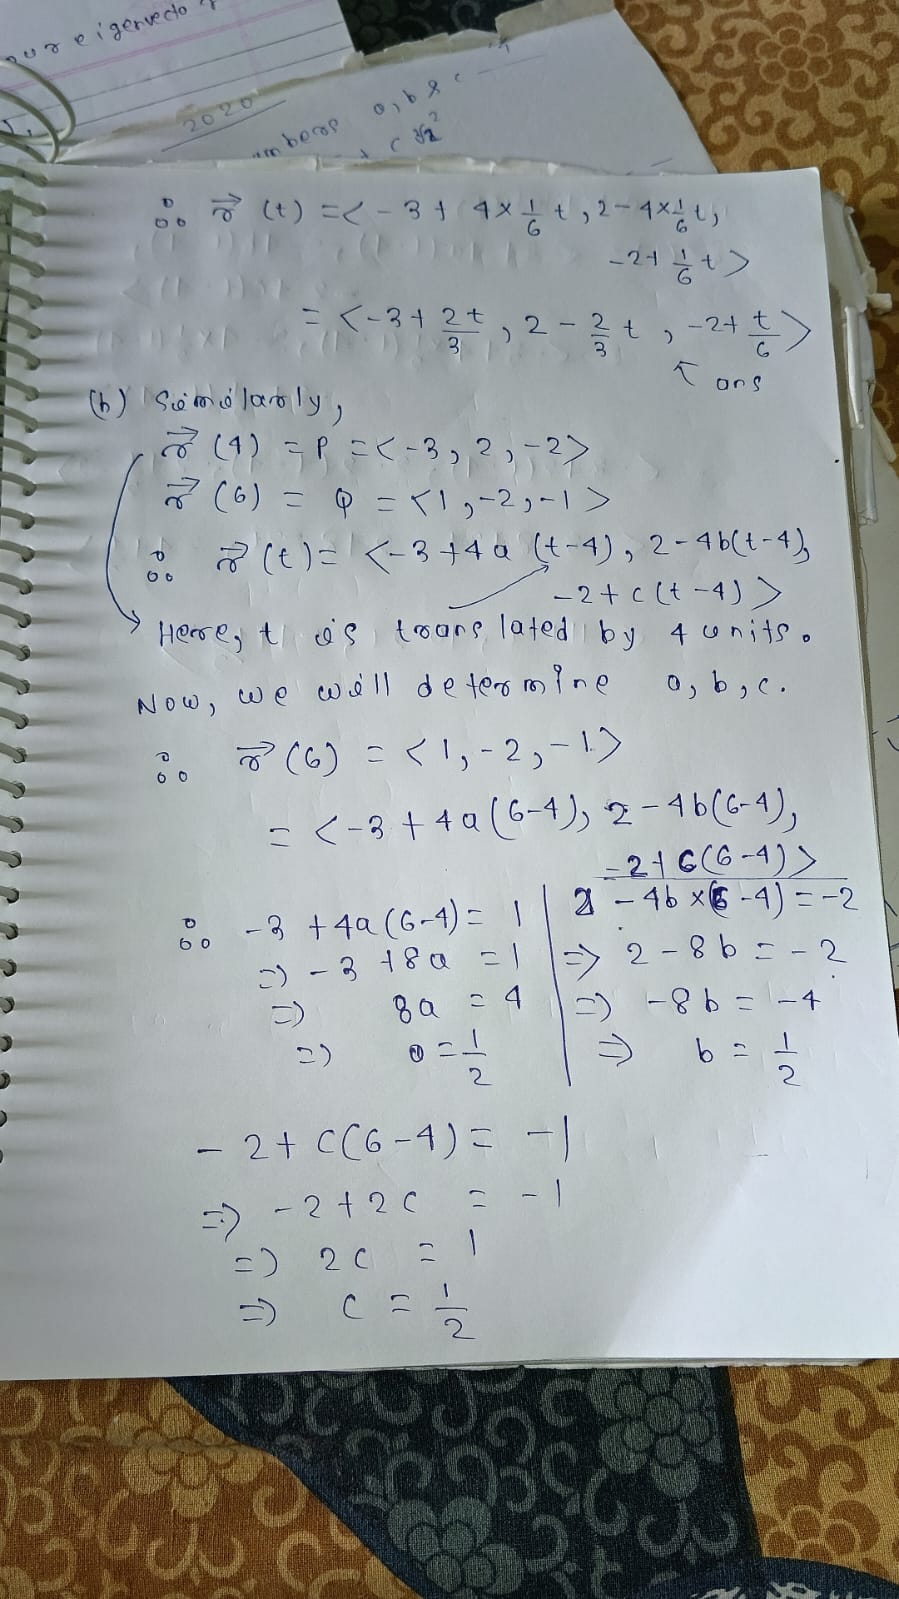 our eigenvecto
2020
mbers a, b & c
∴ r⃗ (t) = < -3 + 4×1/6 t, 2 - 4×1/6 t,
-2 + 1/6 t >
= < -3 + 2t/3, 2 - 2/3 t, -2 + t/6 >
↑ ans
(b) Similarly,
r⃗ (4) = P = < -3, 2, -2 >
r⃗ (6) = Q = < 1, -2, -1 >
∴ r⃗ (t) = < -3 + 4a (t-4), 2 - 4b(t-4),
-2 + c (t-4) >
→ Here, t is translated by 4 units.
Now, we will determine a, b, c.
∴ r⃗ (6) = < 1, -2, -1 >
= < -3 + 4a (6-4), 2 - 4b(6-4),
-2 + 6(6-4) >
∴ -3 + 4a (6-4) = 1
=> -3 + 8a = 1
=> 8a = 4
=> a = 1/2
2 - 4b × (6-4) = -2
=> 2 - 8b = -2
=> -8b = -4
=> b = 1/2
- 2 + c(6-4) = -1
=> -2 + 2c = -1
=> 2c = 1
=> c = 1/2